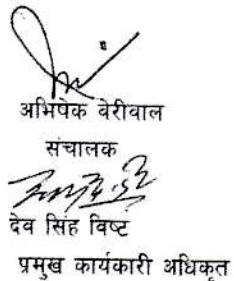 अभिषेक वेरीवाल
संचालक
देव सिंह विष्ट
प्रमुख कार्यकारी अधिकृत